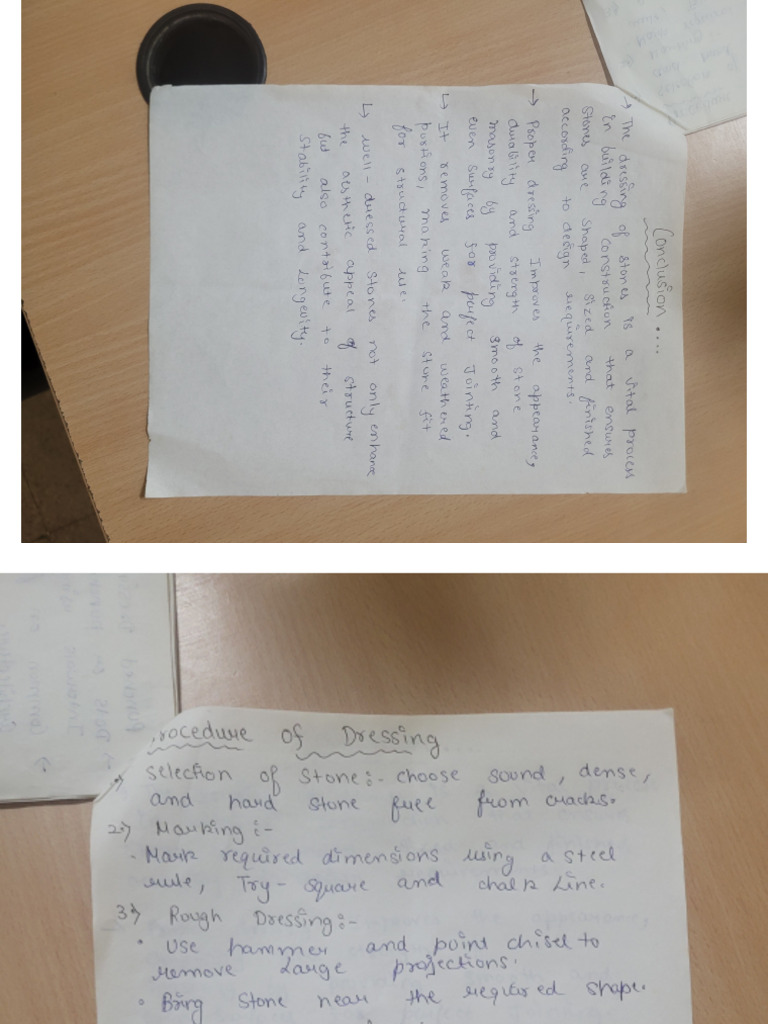 Conclusion....
→ The dressing of stones is a vital process
in building construction that ensures
stones are shaped, sized and finished
according to design requirements.
→ Proper dressing Improves the appearance,
durability and strength of stone
masonry by providing smooth and
even surfaces for perfect Jointing.
↳ It removes weak and weathered
portions, making the stone fit
for structural use.
↳ well-dressed stones not only enhance
the aesthetic appeal of structure
but also contribute to their
stability and Longevity.
rocedure of Dressing
1) Selection of Stone:- choose sound, dense,
and hard stone free from cracks.
2) Marking :-
· Mark required dimensions using a steel
rule, Try-square and chalk Line.
3) Rough Dressing:-
• Use hammer and point chisel to
remove Large projections.
• Bring Stone near the required shape.